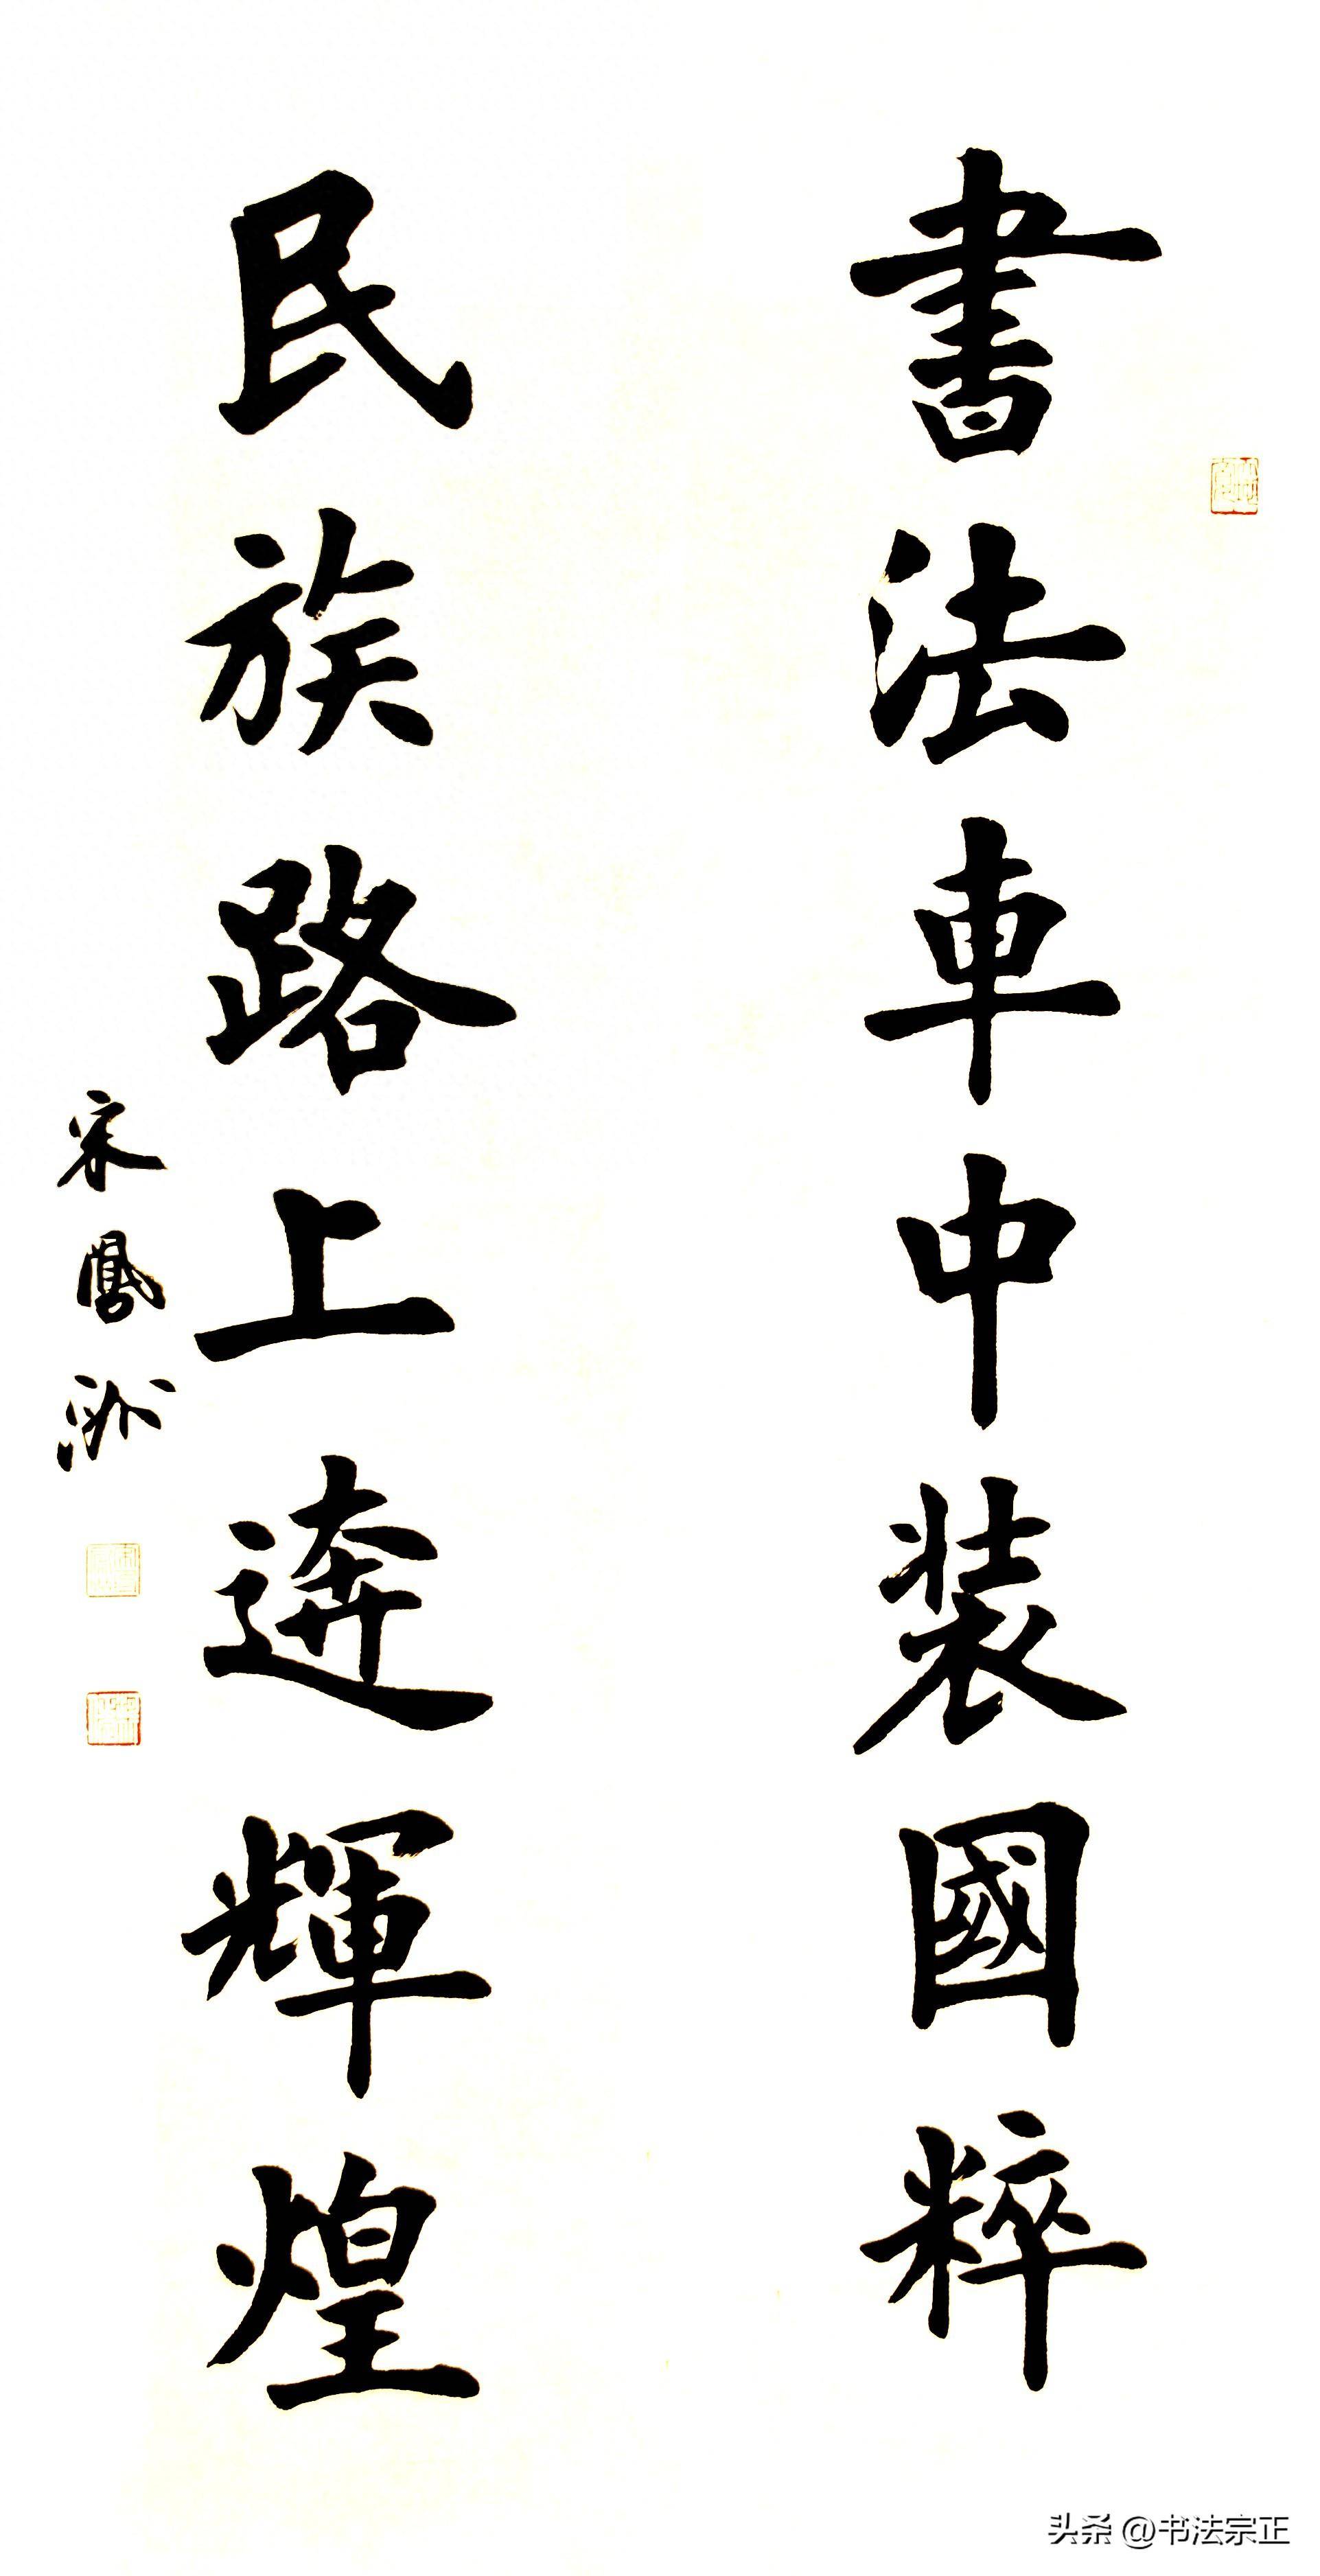 書法車中裝國粹
民族路上逩輝煌
宋鳳洲
头条 @书法宗正